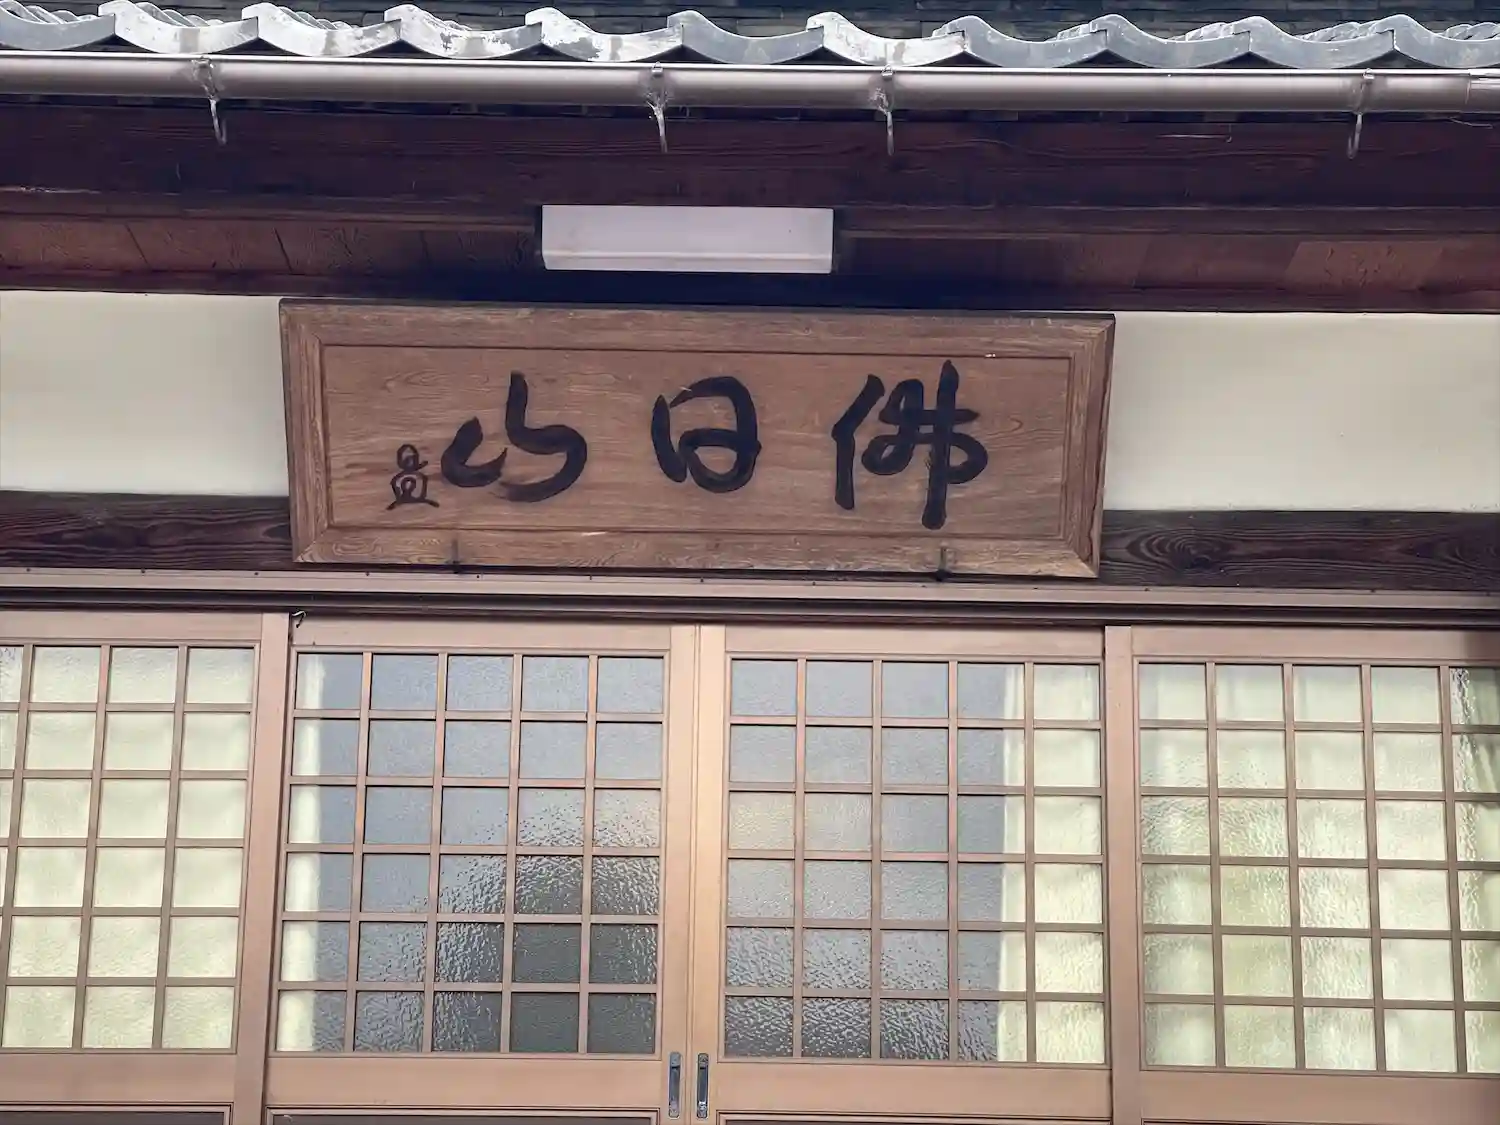 佛日山